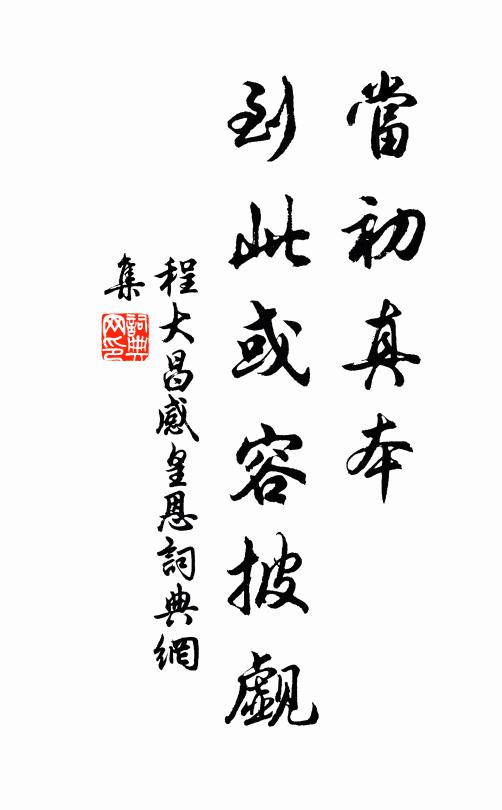 當初真本
到此或容披覷
程大昌感皇恩詞典網
集
詞典
网印